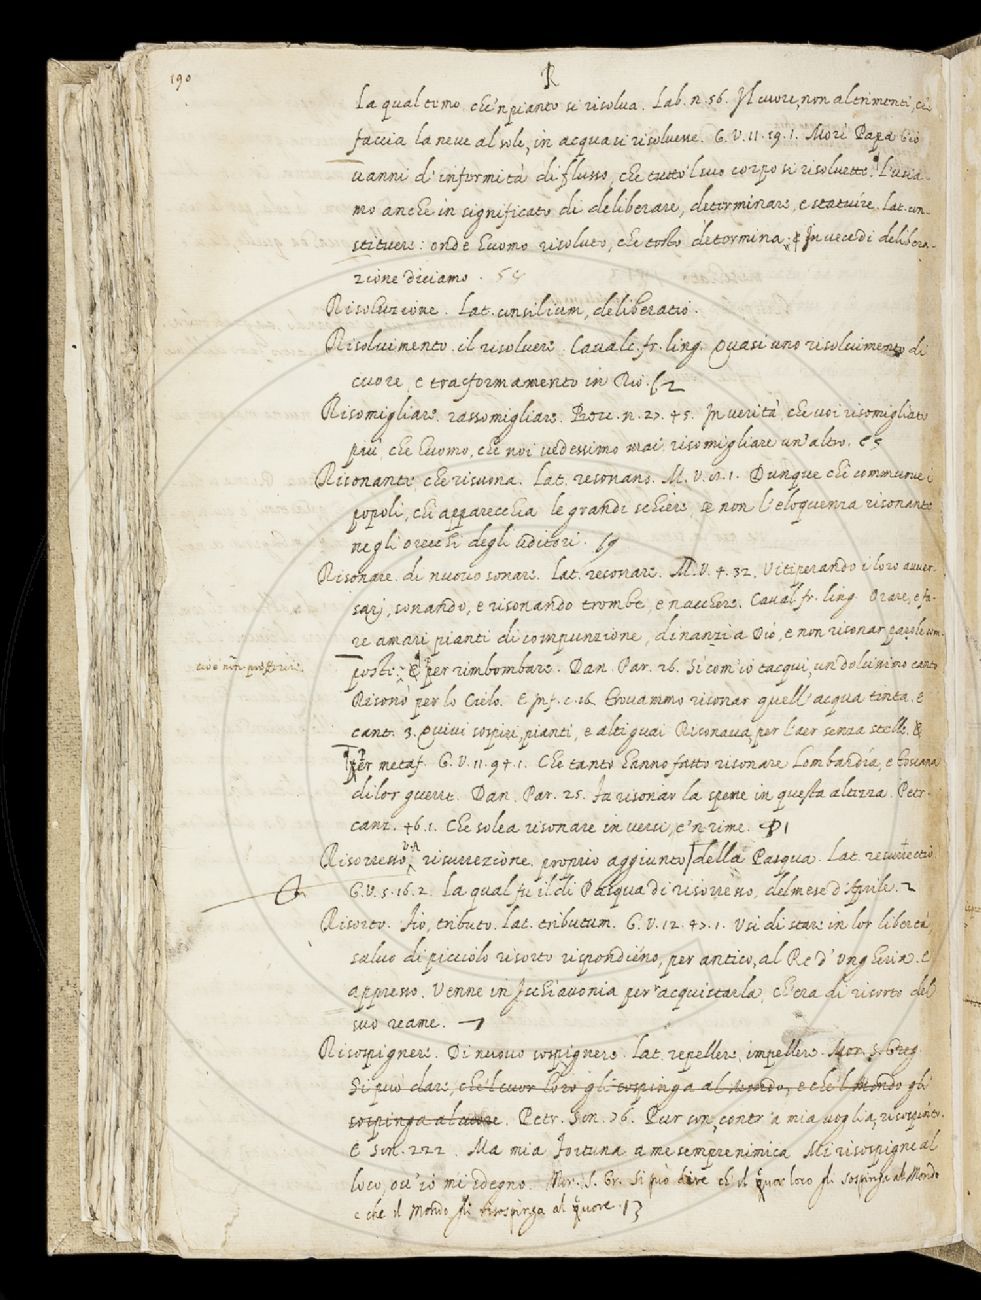 190
R
La qual temo che'n pianto si risolva. Lab. n. 56. Il cuore, non altrimenti, che
faccia la neve al sole, in acqua si risolvesse. G. V. 11. 19. 1. Morì Papa Gio
vanni d'infermità di flusso, che tutto 'l suo corpo si risolvette. L'usia
mo anche in significato di deliberare, determinare, e statuire. Lat. con-
stituere: onde huomo risoluto, che tosto determina; E in vece di delibera-
zione diciamo. 58
Risoluzione. Lat. consilium, deliberatio.
Risolvimento. il risolvere. Cavalc. fr. ling. Quasi uno risolvimento di
cuore, e trasformamento in Dio. 62
Risomigliare. rassomigliare. Bocc. n. 27. 45. In verità che voi risomigliate
più, che huomo, che noi vedessimo mai risomigliare un'altro. 65
Risonante, che risuona. Lat. resonans. M. V. 1. Dunque chi commuove i
popoli, chi apparecchia le grandi schiere, se non l'eloquenza risonante
negli orecchi degli uditori. 69
Risonare. di nuovo sonare. Lat. resonare. M. V. 4. 32. Vitiperando i loro avver
sarj, sonando, e risonando trombe, e nacchere. Caval. fr. ling. Orare, e fa-
re amari pianti di compunzione, dinanzi a Dio, e non risonar parole com-
cioè non profferire
poste; E per rimbombare. Dan. Par. 26. Sì com'io tacqui, un dolcissimo canto
Risonò per lo Cielo. E Inf. c. 16. Trovammo risonar quell'acqua tinta. E
cant. 3. Quivi sospiri, pianti, e alti guai Risonavan per l'aer senza stelle. E
per metaf. G. V. 11. 94. 1. Che tanto hanno fatto risonare Lombardia, e Toscana
di lor guerre. Dan. Par. 25. Fa risonar la speme in questa altezza. Petr.
canz. 46. 1. Che solea risonare in versi, e'n rime. 91
Risorresso, risurrezione. proprio aggiunto della Pasqua. Lat. resurrectio
G. V. 5. 16. 2. La qual fu il dì Pasqua di risorresso, del mese d'Aprile. 2
Risorto. Fio, tributo. Lat. tributum. G. V. 12. 47. 1. Usi di stare in lor libertà,
salvo di picciolo risorto rispondieno, per antico, al Re d'Ungheria. E
appresso. Venne in Ischiavonia per racquistarla, ch'era di risorto del
suo reame. 7
Risospignere. Di nuovo sospignere. Lat. repellere, impellere. Mor. S. Greg.
Si può dare, che'l cuor loro gli sospinga al Mondo, e che'l Mondo gli
sospinga al cuore. Petr. Son. 76. Pur con, contr'a mia voglia, risospinto.
E Son. 222. Ma mia fortuna a me sempre nimica Mi risospigne al
loco, ov'io mi sdegno. Mor. S. Gr. Si può dire che il quor loro gli sospinga al Mondo
e che il Mondo gli risospinga al quore. 13